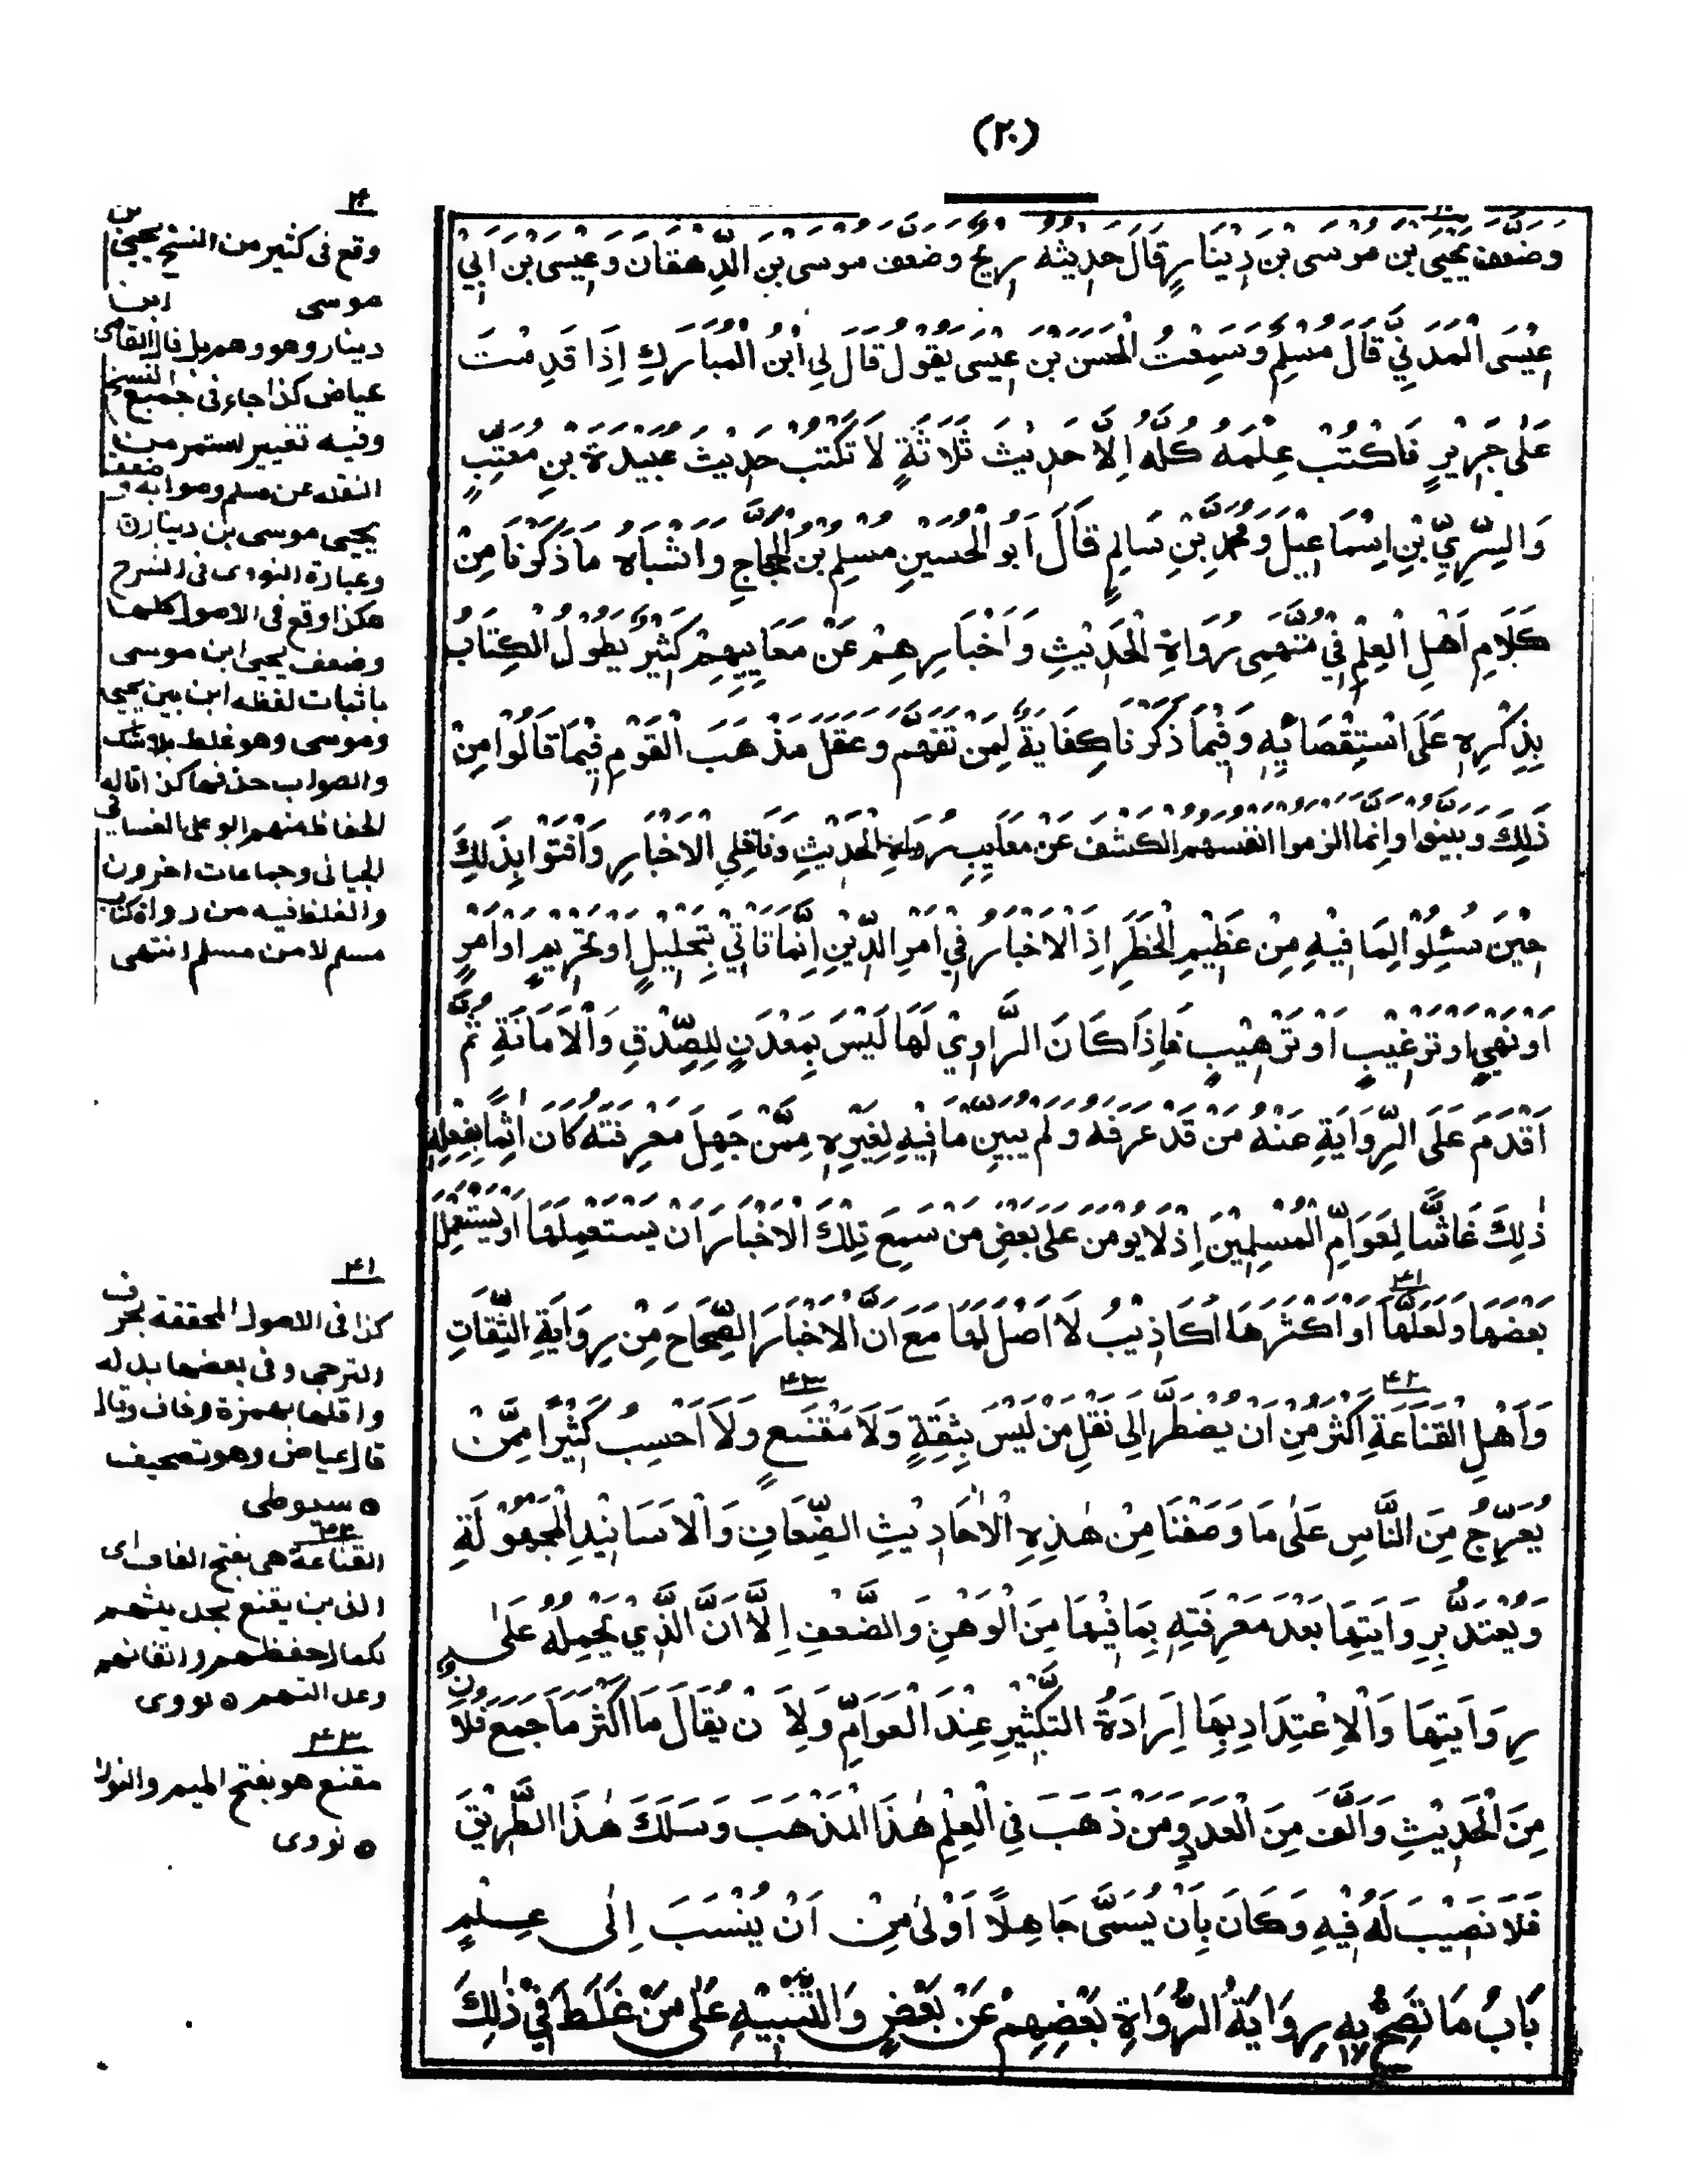 (٢٠)
وضعف يحيى بن موسى بن دينار قال حديثه ريح وضعف موسى بن الدهقان وعيسى بن ابي
عيسى المدني قال مسلم وسمعت الحسن بن عيسى يقول قال لي ابن المبارك اذا قدمت
على جرير فاكتب علمه كله الا حديث ثلاثة لا تكتب حديث عبيدة بن معتب
والسري بن اسماعيل ومحمد بن سالم قال ابو الحسين مسلم بن الحجاج واشباه ما ذكرنا من
كلام اهل العلم في متهمى رواة الحديث واخبارهم عن معاييبهم كثير يطول الكتاب
بذكره على استقصائه وفيما ذكرنا كفاية لمن تفهم وعقل مذهب القوم فيما قالوا من
ذلك وبينوا وانما الزموا انفسهم الكشف عن معايب رواة الحديث وناقلي الاخبار وافتوا بذلك
حين سئلوا لما فيه من عظيم الخطر اذ الاخبار في امر الدين انما تاتي بتحليل او تحريم او امر
او نهي او ترغيب او ترهيب فاذا كان الراوي لها ليس بمعدن للصدق والامانة ثم
اقدم على الرواية عنه من قد عرفه ولم يبين ما فيه لغيره ممن جهل معرفته كان اثما بفعله
ذلك غاشا لعوام المسلمين اذ لا يومن على بعض من سمع تلك الاخبار ان يستعملها او يستعمل
بعضها ولعلها او اكثرها اكاذيب لا اصل لها مع ان الاخبار الصحاح من رواية الثقات
واهل القناعة اكثر من ان يضطر الى نقل من ليس بثقة ولا مقنع ولا احسب كثيرا ممن
يعرج من الناس على ما وصفنا من هذه الاحاديث الضعاف والاسانيد المجهولة
ويعتد بروايتها بعد معرفته بما فيها من الوهن والضعف الا ان الذي يحمله على
روايتها والاعتداد بها ارادة التكثير عند العوام ولان يقال ما اكثر ما جمع فلان
من الحديث والف من العدد ومن ذهب في العلم هذا المذهب وسلك هذا الطريق
فلا نصيب له فيه وكان بان يسمى جاهلا اولى من ان ينسب الى علم
باب ما تصح به رواية الرواة بعضهم عن بعض والتنبيه على من غلط في ذلك
وقع فى كثير من النسخ يحيى بن
موسى ابن
دينار وهو وهم بل قال القاضى
عياض كذا جاء فى جميع النسخ
وفيه تغيير استمر من
النقلة عن مسلم وصوابه وضعف
يحيى موسى بن دينار ن
وعبارة النووى فى الشرح
هكذا وقع فى الاصول كلها
وضعف يحيى ابن موسى
باثبات لفظه ابن بين يحيى
وموسى وهو غلط بلاشك
والصواب حذفها كذا قاله
الحفاظ منهم ابو على الغسانى
الجيانى وجماعات اخرون
والغلط فيه من رواة كتاب
مسلم لا من مسلم انتهى
٤١
كذا فى الاصول المحققة بحرف
الترجى وفى بعضها بدله
واقلها بهمزة وقاف وقال
قال عياض وهو تصحيف
ه سيوطى
القناعة هى بفتح القاف اى
الذين يقنع بحديثهم
لكمال حفظهم واتقانهم
وعدالتهم ه نووى
٤٣
مقنع هو بفتح الميم والنون
ه نووى